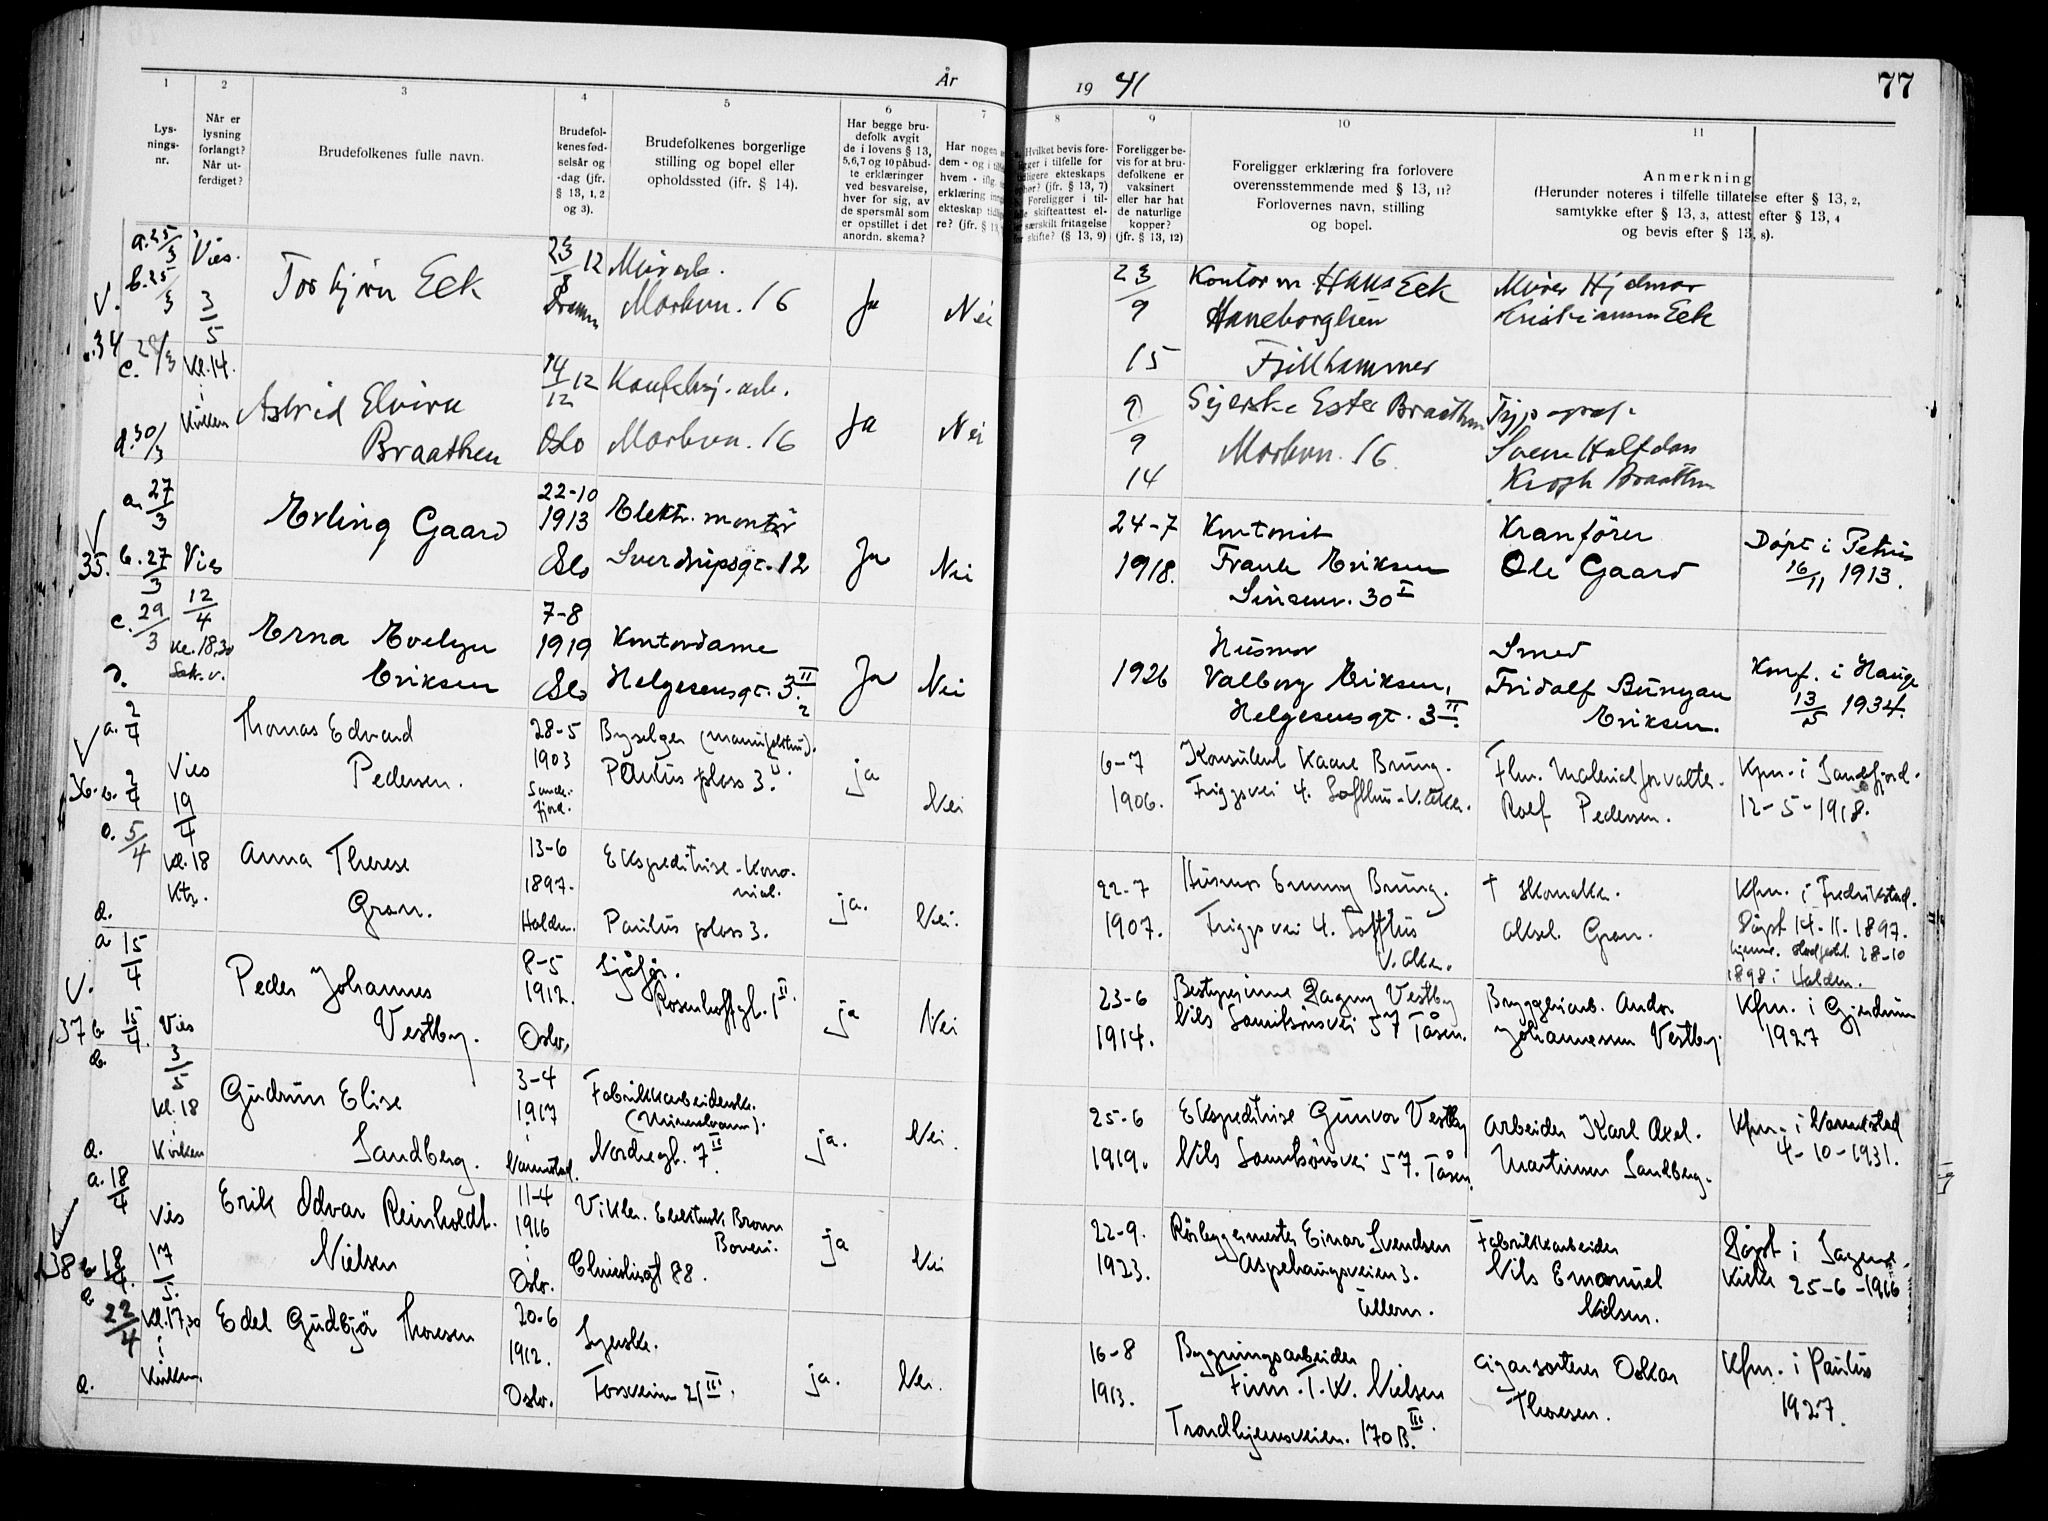 År 19 41
77
1 2 3 4 5 6 7 8 9 10 11
Lys-
nings-
nr.
Når er
lysning
forlangt?
Når ut-
ferdiget?
Brudefolkenes fulle navn.
Brudefol-
kenes fød-
selsår og
-dag (jfr.
§ 13, 1, 2
og 3).
Brudefolkenes borgerlige
stilling og bopel eller
opholdssted (jfr. § 14).
Har begge bru-
defolk avgit
de i lovens § 13,
5, 6, 7 og 10 påbud-
te erklæringer
ved besvarelse,
hver for sig, av
de spørsmål som
er opstillet i det
anordn. skema?
Har nogen
dem - og i
hvem - iflg.
erklæring
ekteskap
re? (jfr. § 13,
Hvilket bevis fore-
i tilfelle for
ekteskaps
(jfr. § 13, 7)
Foreligger i til-
skifteattest el-
særskilt fritagelse
skifte? (§ 13, 9)
Foreligger be-
vis for at bru-
defolkene er
vaksinert
eller har hat
de naturlige
kopper?
(jfr. § 13, 12)
Foreligger erklæring fra forlovere
overensstemmende med § 13, 11?
Forlovernes navn, stilling
og bopel.
Anmerkning
(Herunder noteres i tilfelle tillatelse efter § 13, 2,
samtykke efter § 13, 3, attest efter § 13, 4
og bevis efter § 13, 8).
V. 34
a. 25/3
b. 25/3
Vies.
3/5
kl. 14.
i
Kirken
Torbjørn Eek
12
Murarb.
Markvn. 16
Ja
Nei
23/9
15
Kontorm. Hans Eek
Haneborglien
Murer Hjalmar
Kristiansen Eek
d. 30/3
Astrid Elvira
Braathen
14/12 12
Oslo
Konfeksj. arb.
Markvn. 16
Ja
Nei
9/9
14
Syerske Ester Braathen
Markvn. 16.
Typograf
Halfdan
Krogh Braathen
35.
a. 27/3
b. 27/3
c. 29/3
d.
Vies
12/4
kl. 18,30
Sakr. v.
Erling Gaard
22-10
1913
Oslo
Elektr. montør
Sverdrupsgt. 12
Ja
Nei
24-7
1918.
Kontorist
Frank Eriksen
Sinsenv. 30 I
Kranfører
Ole Gaard
Døpt i Petrus
16/11 1913.
Erna Evelyn
Eriksen
7-8
1919
Oslo
Kontordame
Helgesensgt. 3 II
2
Ja
Nei
1926
Husmor
Valborg Eriksen,
Helgesensgt. 3 II.
Smed
Fridolf Bunyan
Eriksen.
Konf. i Hauge
13/5 1934.
36.
a. 2/4
b. 2/4
c. 5/4
d.
Vies
19/4
Kl. 18
Ktr.
Thomas Edvard
Pedersen.
28-5
1903
Sande-
fjord.
Byselger (manufaktur).
Paulus plass 3 II.
ja
Nei
6-7
1906.
Konsulent Kaare Bruug.
Friggsvei 4. Lofthus - V. Aker.
Fhv. Materialforvalter
Rolf Pedersen.
Kfm. i Sandefjord.
12-5-1918.
Anna Therese
Gran.
13-6
1897.
Halden.
Ekspeditrise - Kolo-
nial.
Paulus plass 3.
ja.
Nei.
22-7
1907.
Husmor Emmy Bruug.
Friggsvei 4. Lofthus
V. Aker.
† Skomaker.
Aksel Gran.
Kfm. i Fredrikstad.
Døpt 14-11-1897.
hjemme. Stadfestet 28-10
1898 i Halden.
V. 37
a 15/4
b 15/4.
c.
d.
Vies
3/5
Kl. 18
i
Kirken
Peder Johannes
Vestby.
8-5
1912.
Oslo.
Sjåfør.
Rosenhoffgt. 1 II.
ja
Nei
23-6
1914.
Bestyrerinne Dagny Vestby
Nils Lauritsønsvei 57 Tåsen.
Bryggeriarb. Andr.
Johannessen Vestby.
Kfm. i Gjerdrum
1927
Gudrun Elise
Sandberg.
3-4
1917
i
Fabrikkarbeiderske.
(Mineralvann).
Nordregt. 7 II.
ja.
Nei.
25-6
1919.
Ekspeditrise Gunvor Vestby
Nils Lauritsønsvei 57. Tåsen.
Arbeider Karl Axel.
Martinsen Sandberg.
4-10-1931.
38
a. 18/4
b 18/4.
c 22/4
d.
Vies
17/5.
kl. 17,30
i
Kirken.
Erik Odvar Reinholdt.
Nielsen
11-4
1916
i
Oslo.
Vikler. Elektrisk Brown
Boveri.
88.
ja
Nei
22-9.
1923.
Rørleggermester Einar Svendsen
Aspehaugsveien 3.
Ullern.
Fabrikkarbeider
Nils Emanuel
Nielsen.
Døpt i Sagene
Kirke 25-6-1916
Edel Gudbjør Thoresen
20-6
1912.
Oslo.
Syerske.
Torsveien 21 III.
ja.
Nei.
16-8
1913.
Bygningsarbeider
Finn. T. W. Nielsen
Trondhjemsveien. 170 B. III.
Cigarsorterer Oskar
Thoresen.
Kfm. i Paulus
1927.